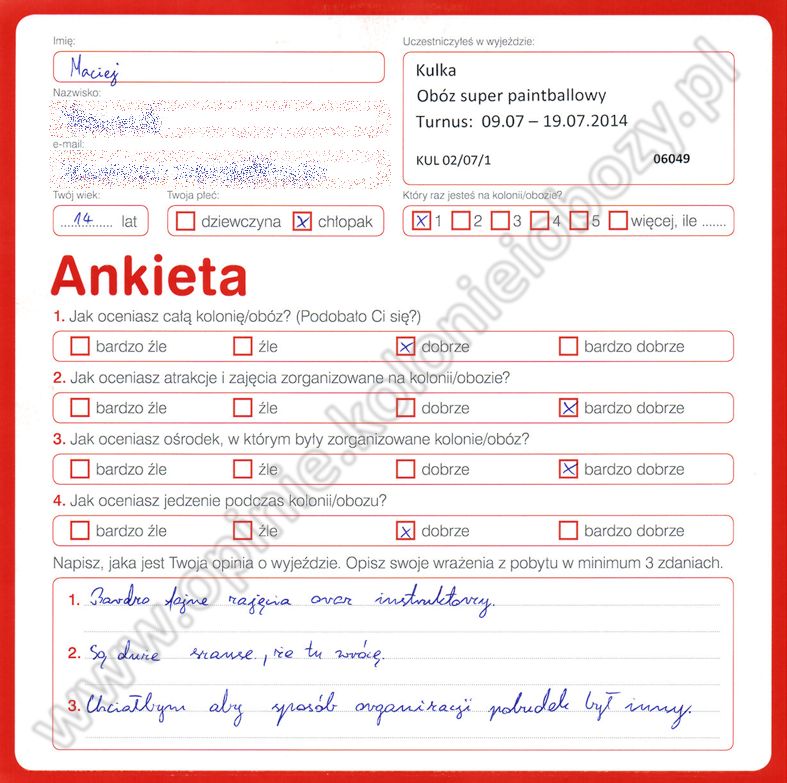 Imię:
Maciej
Uczestniczyłeś w wyjeździe:
Kulka
Obóz super paintballowy
Turnus: 09.07 – 19.07.2014
KUL 02/07/1 06049
Nazwisko:
e-mail:
Twój wiek:
14 lat
Twoja płeć:
dziewczyna x chłopak
Który raz jesteś na kolonii/obozie?
x 1 2 3 4 5 więcej, ile .......
Ankieta
1. Jak oceniasz całą kolonię/obóz? (Podobało Ci się?)
bardzo źle źle x dobrze bardzo dobrze
2. Jak oceniasz atrakcje i zajęcia zorganizowane na kolonii/obozie?
bardzo źle źle dobrze x bardzo dobrze
3. Jak oceniasz ośrodek, w którym były zorganizowane kolonie/obóz?
bardzo źle źle dobrze x bardzo dobrze
4. Jak oceniasz jedzenie podczas kolonii/obozu?
bardzo źle źle x dobrze bardzo dobrze
Napisz, jaka jest Twoja opinia o wyjeździe. Opisz swoje wrażenia z pobytu w minimum 3 zdaniach.
1. Bardzo fajne zajęcia oraz instruktorzy.
2. Są duże szanse, że tu wrócę.
3. Chciałbym aby sposób organizacji pobudek był inny.
www.opinie.kolonieiobozy.pl